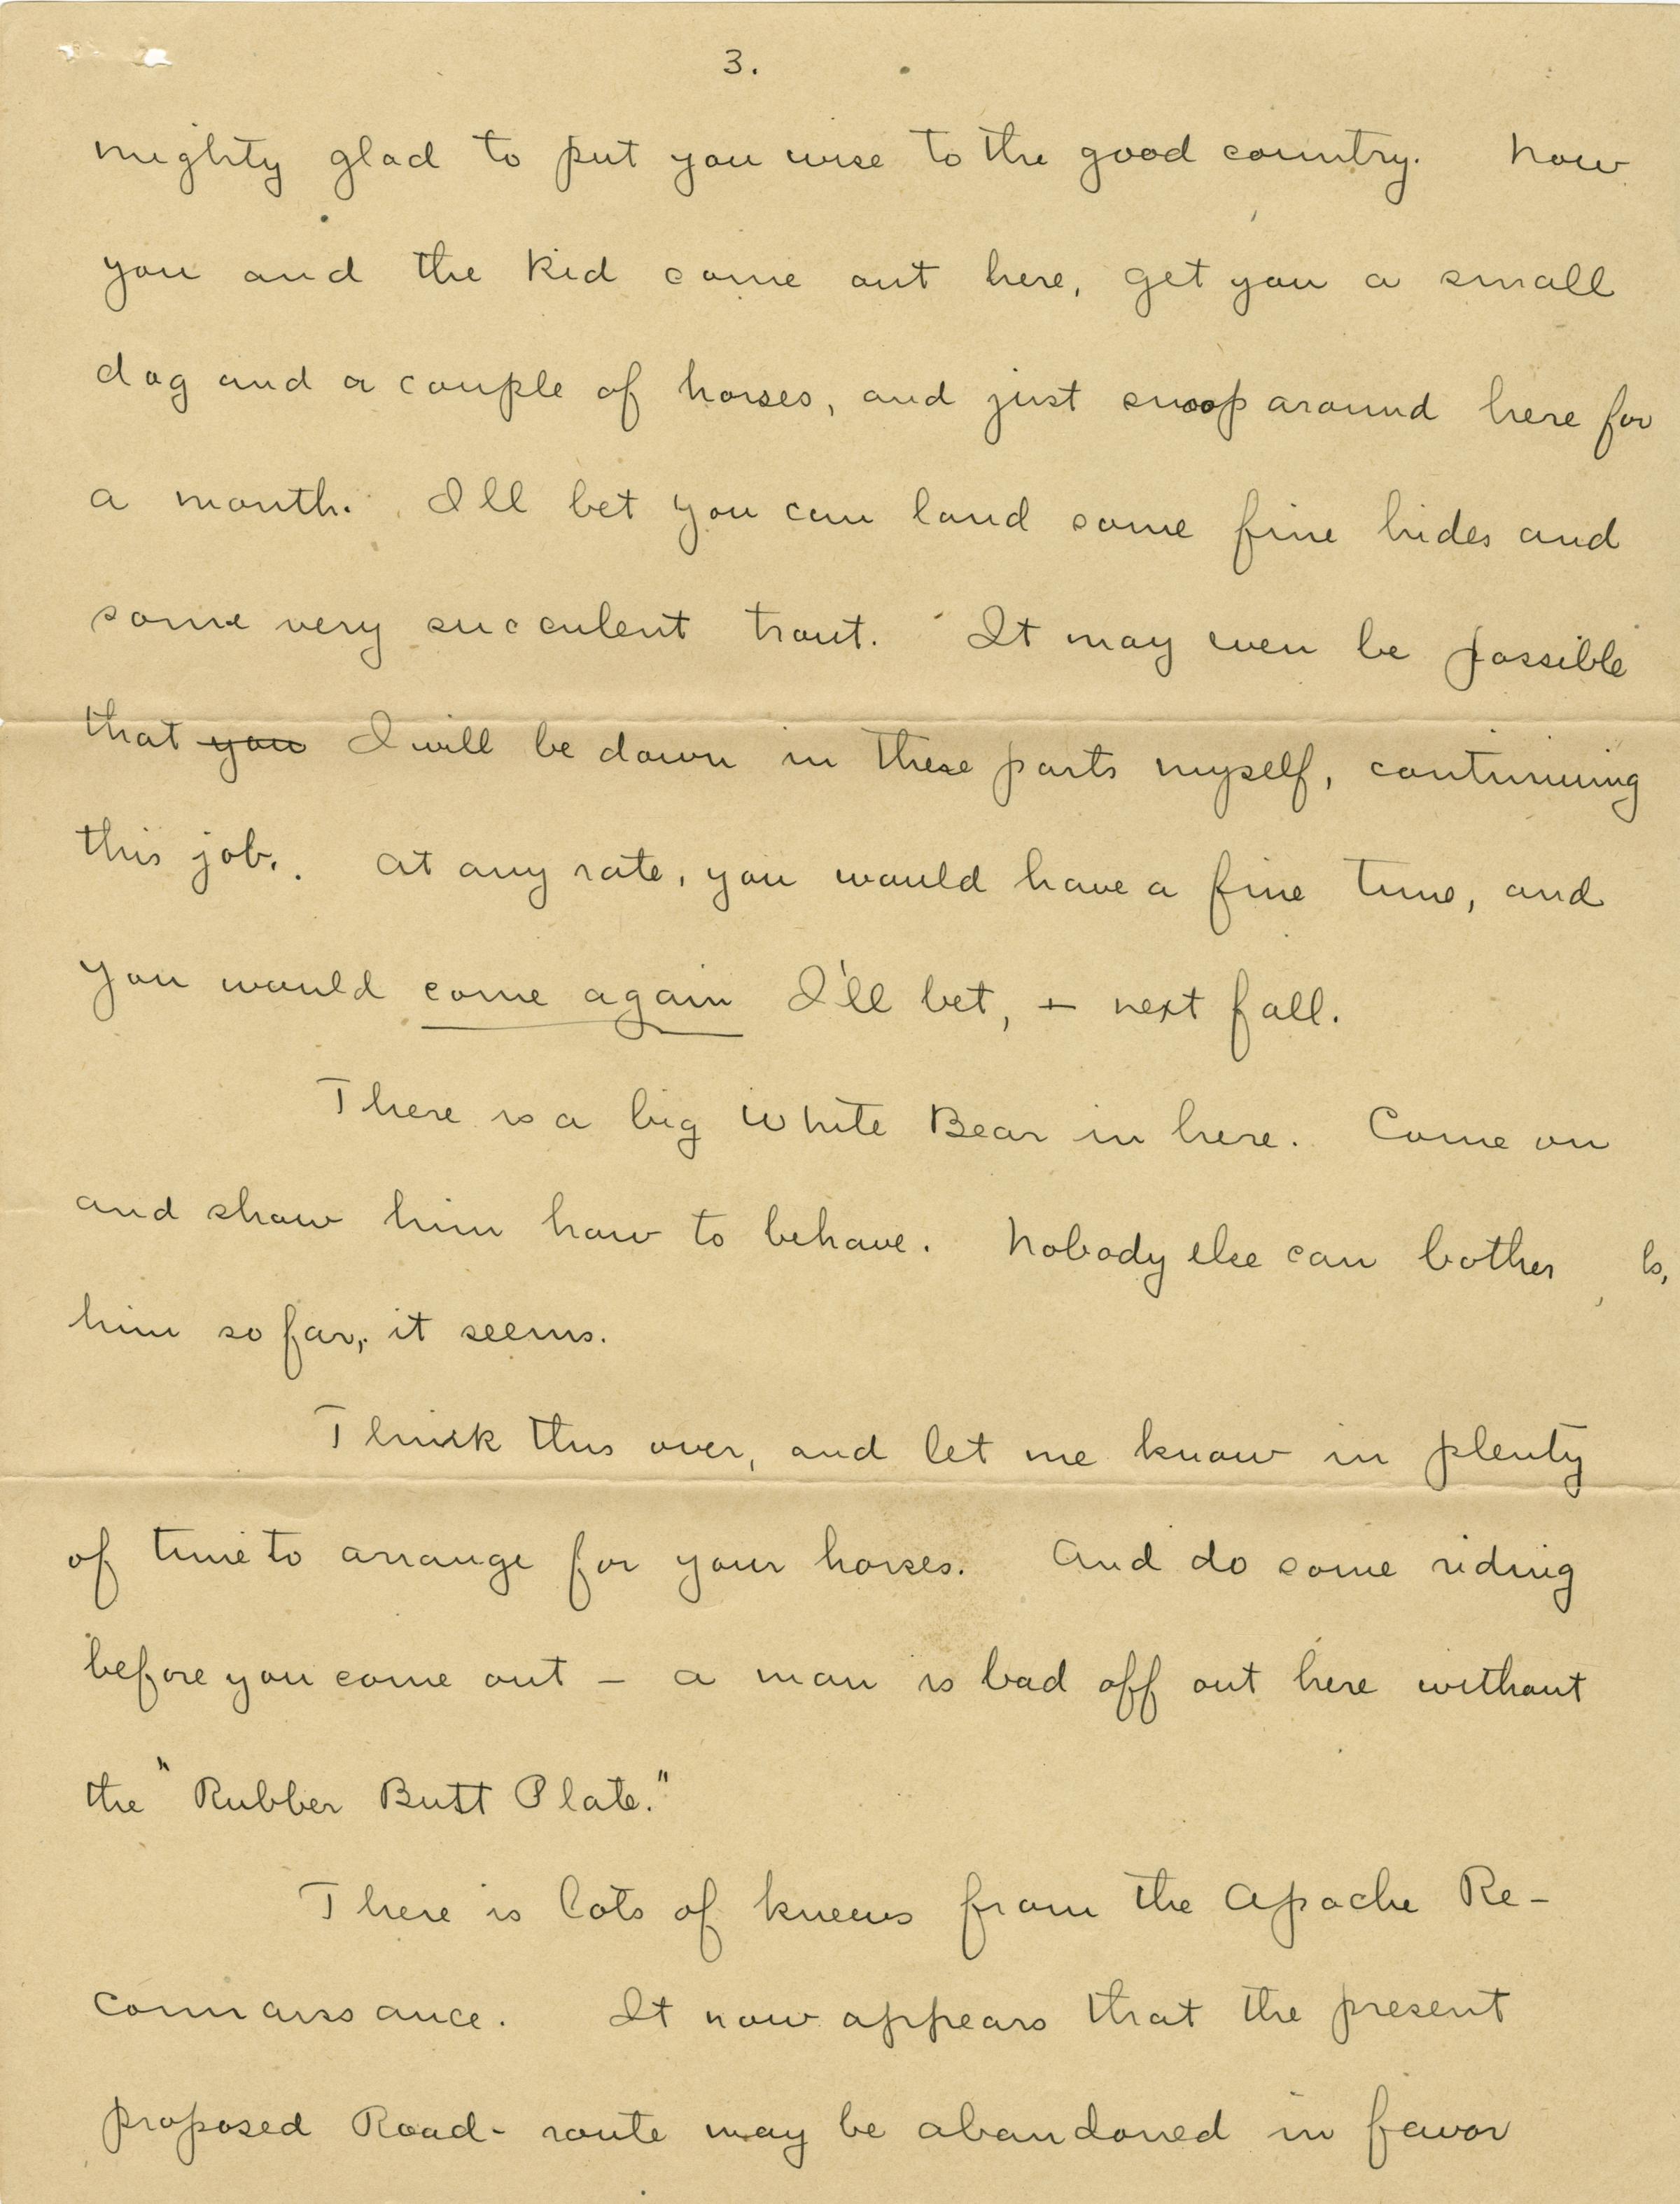 3.
mighty glad to put you wise to the good country. Now
you and the kid come out here, get you a small
dog and a couple of horses, and just snoop around here for
a month. I'll bet you can land some fine hides and
some very succulent trout. It may even be possible
that you I will be down in these parts myself, continuing
this job. At any rate, you would have a fine time, and
you would come again I'll bet, + next fall.
There is a big White Bear in here. Come on
and show him how to behave. Nobody else can bother
him so far, it seems.
Think this over, and let me know in plenty
of time to arrange for your horses. And do some riding
before you come out — a man is bad off out here without
the "Rubber Butt Plate."
There is lots of kneews from the Apache Re-
connaissance. It now appears that the present
proposed Road-route may be abandoned in favor